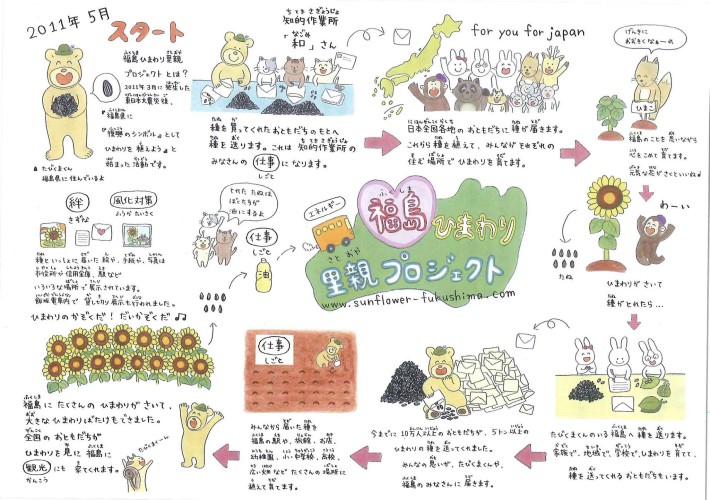 2011年 5月
スタート
福島ひまわり里親
プロジェクトとは?
2011年3月に発生した
東日本大震災後、
福島県に
『復興のシンボル』として
ひまわりを植えようと
始まった活動です。
▲たびまくん
福島県に住んでいるよ
知的作業所
「和」さん
種を買ってくれたおともだちのもとへ
種を送ります。これは知的作業所の
みなさんの仕事になります。
しごと
for you for japan
日本全国各地のおともだちに種が届きます。
これから種を植えて、みんながそれぞれの
住む場所でひまわりを育てます。
げんきに
おおきくなぁーれ
ひまこ
福島のことを思いながら
心をこめて育てます。
元気な花がさくといいね♪
わーい
ひまわりがさいて
種がとれたら…
たね
種を送ります。
たびまくんのいる福島へ種を送ります。
家族で、地域で、学校でひまわりを育て、
種を送ってくれるおともだちもいます。
今までに10万人以上のおともだちが、5トン以上の
ひまわりの種を送ってくれました。
みんなの思いが、たびまくんや、
福島のみなさんに届きます。
仕事
しごと
みんなから届いた種を
福島の駅や、病院、お店、
幼稚園、小・中学校、高校、
広い畑など たくさんの場所に
植えて育てます。
福島にたくさんのひまわりがさいて、
大きなひまわりばたけもできました。
全国のおともだちが
ひまわりを見に福島に
観光にも来てくれます。
かんこう
たびまくーん
絆
きずな
風化対策
ふうかたいさく
種といっしょに届いた絵や、手紙や、写真は
市役所や信用金庫、駅など
いろいろな場所で展示されています。
飯坂電車内で貸し切り展示も行われました。
ひまわりのかぞくだ!だいかぞくだ♪♫
とれたたねは
ぼくたちが
油にするよ
仕事
しごと
油
エネルギー
福島
ふくしま
ひまわり
さとおや
里親プロジェクト
www.sunflower-fukushima.com